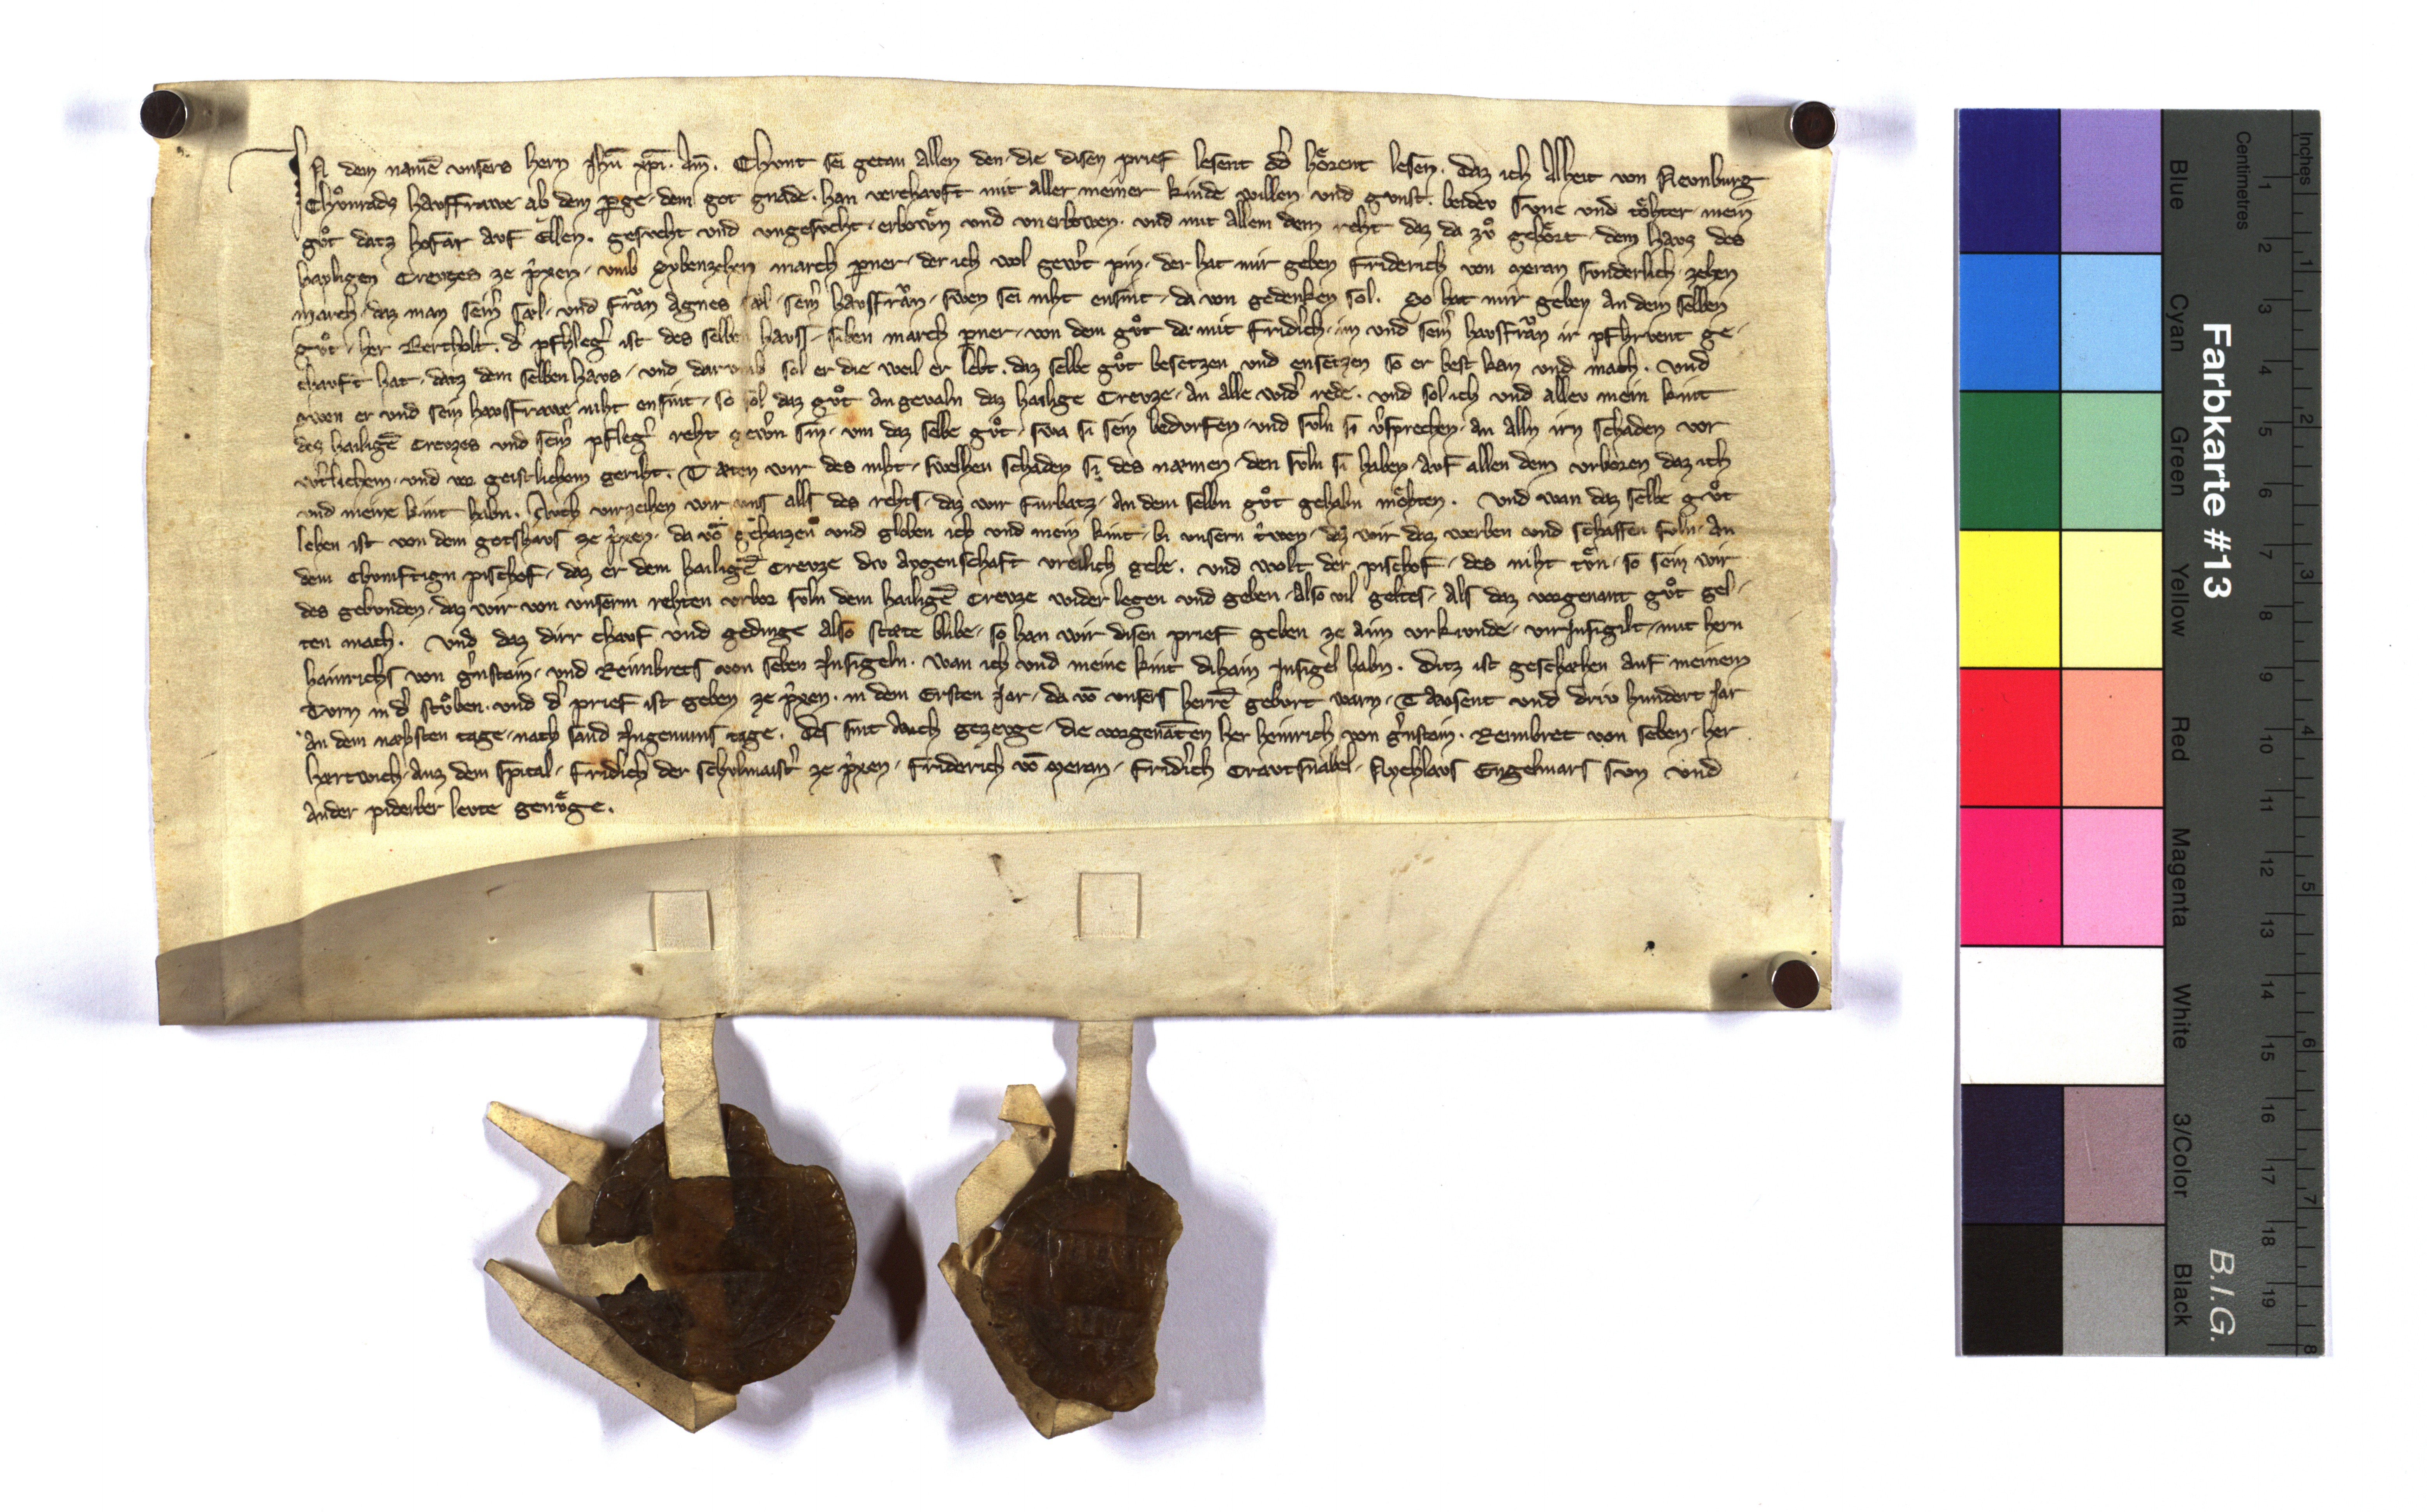 IN dem namē unsers hern Jhū xp̄i. Am̄. Chunt sei getan allen den die disen prief lesent od̓ hoͤrent lesen. daz ich Alheit von Nevnburg
Chuͦnrads havsfrawe ab dem p̲ge dem got gnade. han verchavft mit aller meiner kinde willen und gunst. beidev svne und toͤhter mein
guͦt datz hofar avf Ellen. gesvcht und ungesvcht erbowͤn und unerbowen. und mit allem dem reht daz da zuͦ gehoͤrt dem havs des
hayligen Crevtzes ze p̓xen umb sybenzehen march p̲ner der ich wol gew̓t pin. der hat mir geben Friderich von Meran svnderlich zehen
march daz man sein̓ sæl und fraͮn Agnes sæl sein̓ havsfraͮn swen sei niht ensint da von gedenken sol. So hat mir geben an dem selben
guͦt her Bertholt. d̓ pfhleg̓ ist des selben havss siben march p̲ner von dem guͦt da mit Fridr̓ich im und sein̓ havsfraͮn ir pfhrvent ge-
chavft hat datz dem selben havs und darumb sol er die weil er lebt. daz selbe guͦt besetzen und ensetzen so er best kan und mach. Und
swen er und sein havsfrawe niht ensint so sol daz guͦt angevaln daz hailige Crevze an alle wid̓ rede. und sol ich und allev mein kint
des hailigē Crevzes und sein̓ pfleg̓ reht gew̓n sin um daz selbe guͦt swa si sein bedurfen und svln si v̓sprechen an alln irn schaden vor
w̓tlichem und vor geistlichem geriht. Tæten wir des niht swelhen schaden si des næmen den svln si haben avf allen dem urboren daz ich
und meine kint habn. Auch verzeihen wir uns alls des rehts daz wir furbatz an dem selbn guͦt gehabn moͤhten. Und wan daz selbe guͦt
lehen ist von dem gotshavs ze p̓xen. da vō gehaizen und geloben ich und mein kint bi unsern t̓wen daz wir daz werben und schaffen svln an
dem chomftign pischof daz er dem hailigē Crevze div aygenschaft vreilich gebe. und wolt der pischof des niht tuͤn so sein wir
des gebunden daz wir von unserm rehten urbor svln dem hailigē Crevze wider legen und geben also vil geltes als daz vorgenant guͦt gel-
ten mach. Und daz dirr chavf und gedinge also stæte blibe so han wir disen prief geben ze aim urkunde virinsigilt mit hern
hainrichs von g̓nstain und Reimbrets von Seben Insigeln. wan ich und meine kint dihain Insigel habn. Ditz ist geschehen auf meinem
Turn in d̓ stuͦben und d̓ prief ist geben ze p̓xen in dem Ersten Jar da vō unsers herrē geburt warn Tavsent und driv hundert Jar
an dem næhsten tage nach sand Ingenuins tage. Des sint Auch gezevge die vorgenāten her heinrich von g̓nstain. Reimbret von Seben her
hertwich Auz dem Spital Fridr̓ich der Schvlmaist̓ ze p̓xen Friderich vō Meran Fridr̓ich Cravtsnabel Nychlavs Engelmars svn und
ander piderber levte genuͤge.
Farbkarte #13
B.I.G.
Blue Cyan Green Yellow Red Magenta White 3/Color Black
Centimetres 1 2 3 4 5 6 7 8 9 10 11 12 13 14 15 16 17 18 19
Inches 1 2 3 4 5 6 7 8